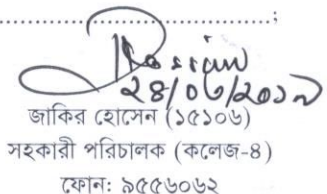 ২৪/০৬/২০১৯
জাকির হোসেন (১৫১০৬)
সহকারী পরিচালক (কলেজ-৪)
ফোন: ৯৫৫৬০৬২